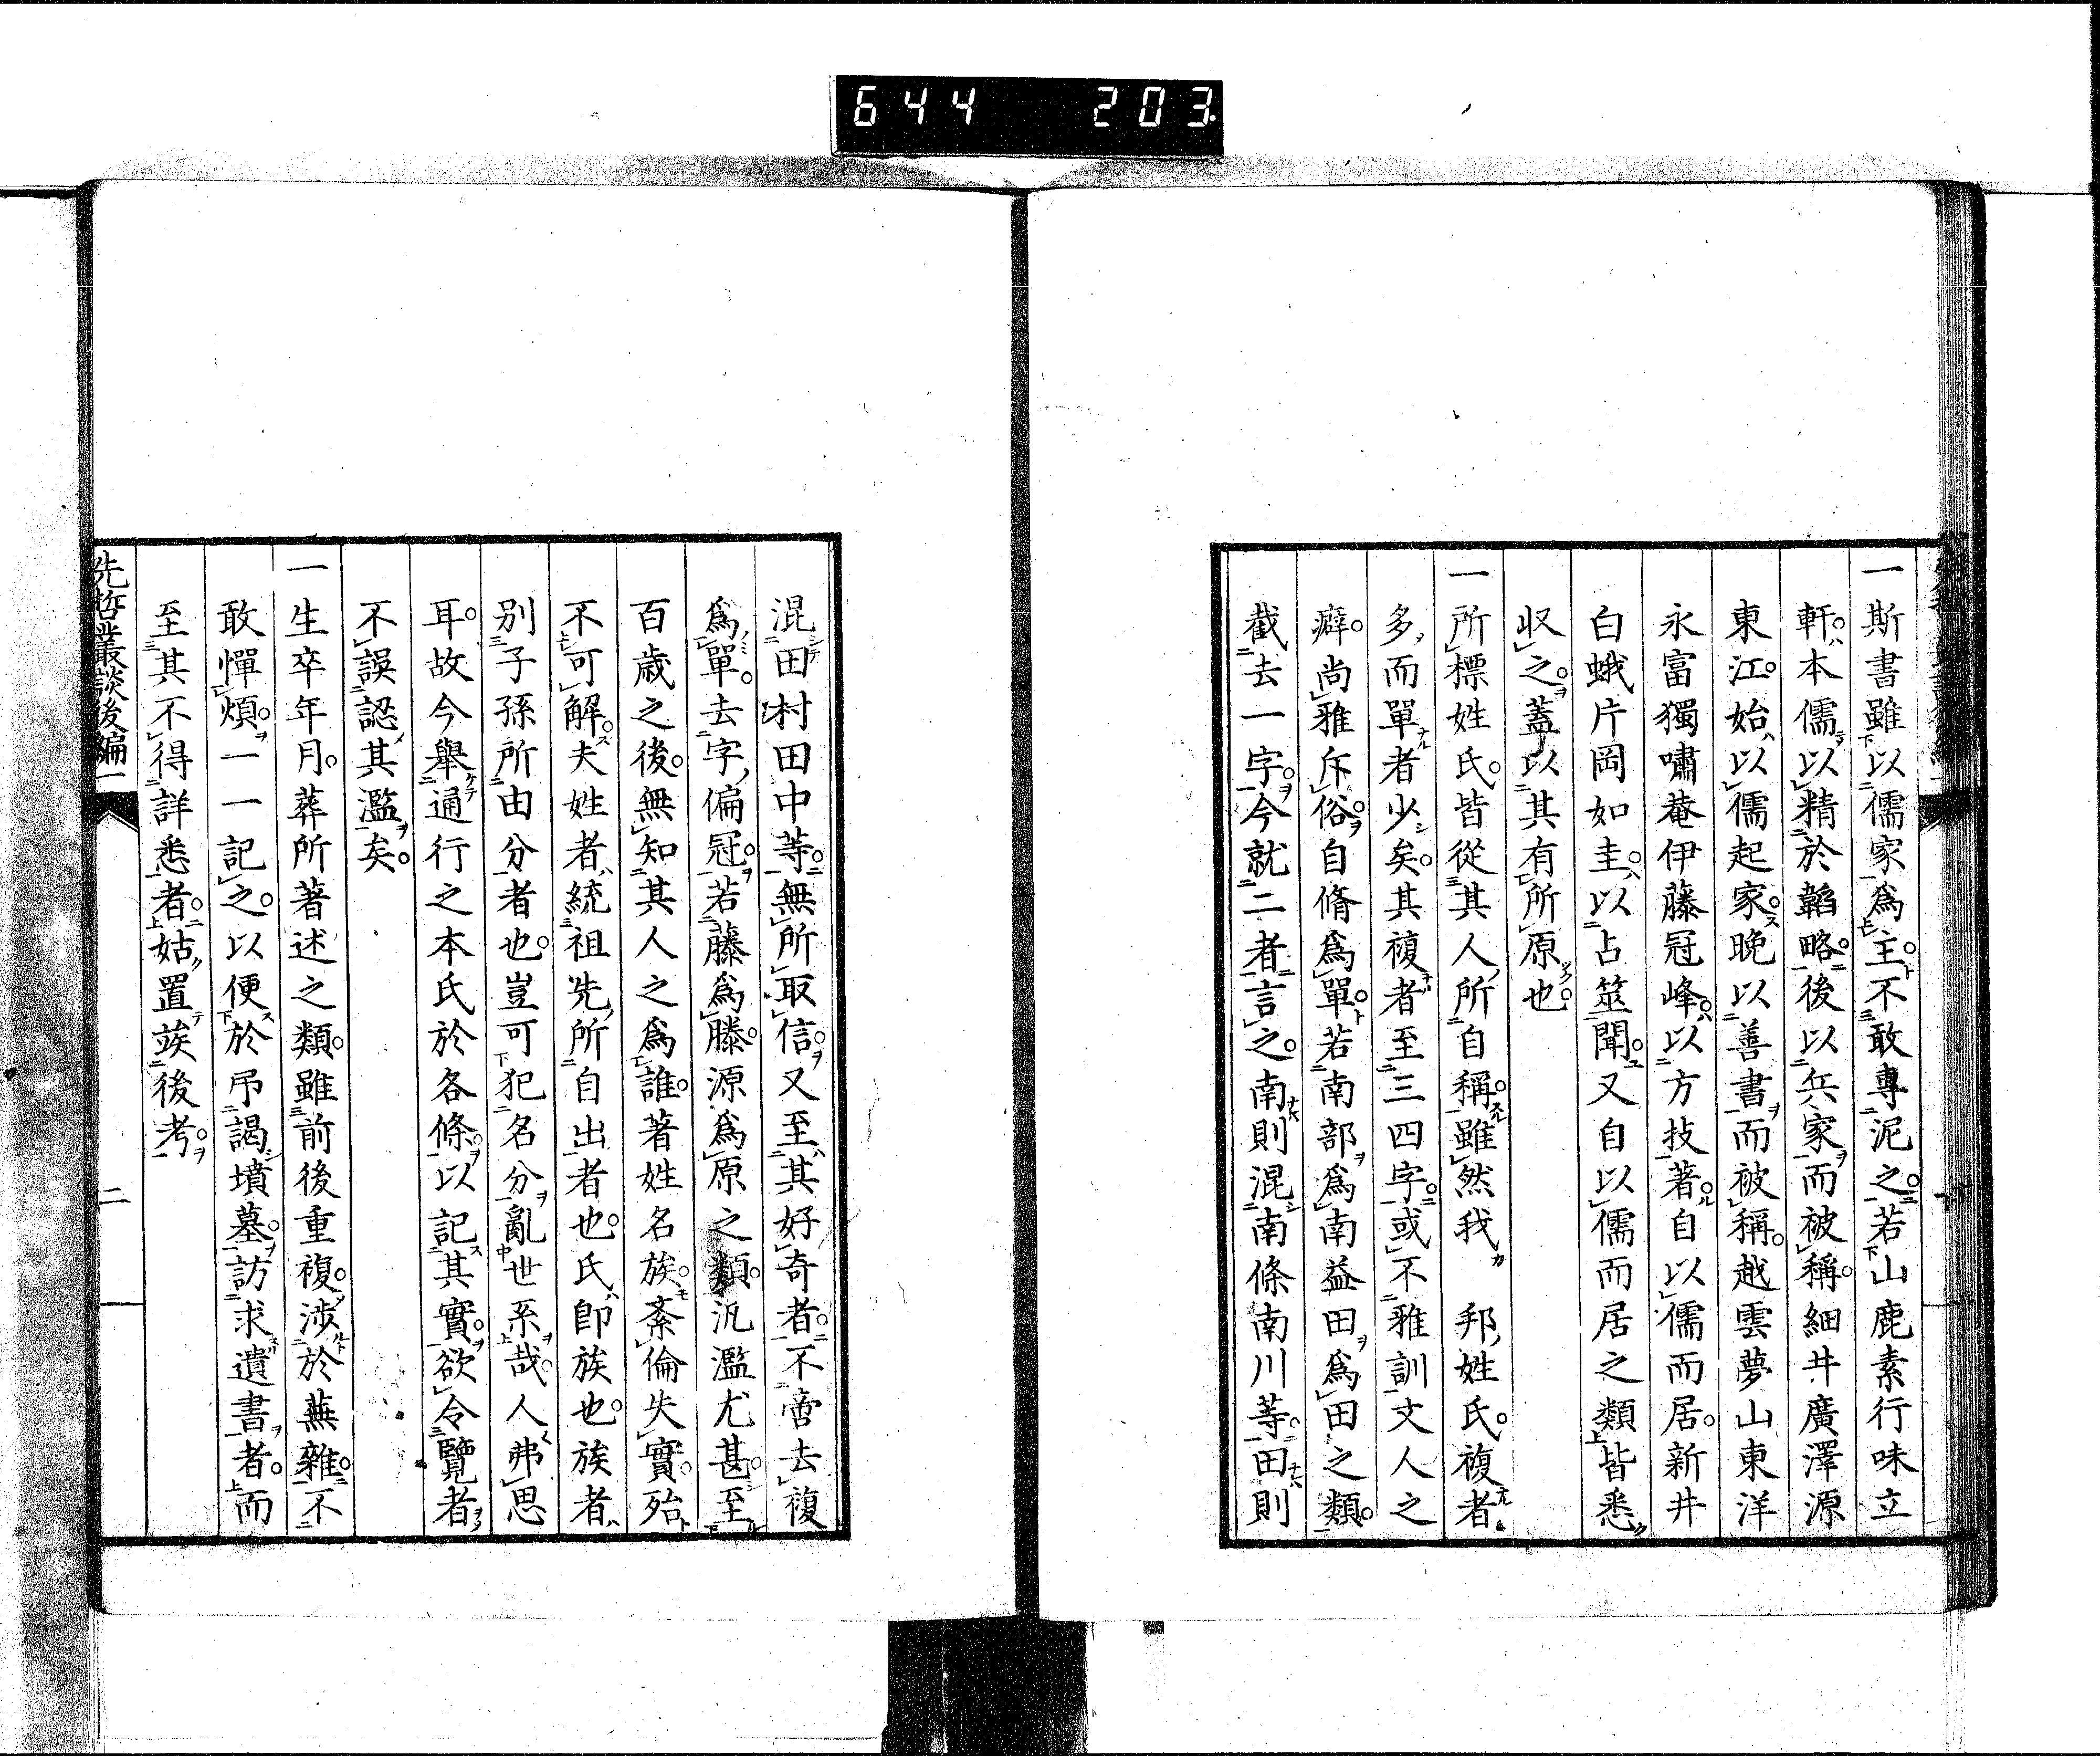 644 203
一斯書雖以儒家爲主不敢專泥之若山鹿素行味立
軒本儒以精於韜略後以兵家而被稱細井廣澤源
東江始以儒起家晩以善書而被稱越雲夢山東洋
永富獨嘯菴伊藤冠峰以方技著自以儒而居新井
白蛾片岡如圭以占筮聞又自以儒而居之類皆悉
収之蓋以其有所原也
一所標姓氏皆從其人所自稱雖然我 邦姓氏複者
多而單者少矣其複者至三四字或不雅訓文人之
癖尚雅斥俗自脩爲單若南部爲南益田爲田之類
截去一字今就二者言之南則混南條南川等田則
混田村田中等無所取信又至其好奇者不啻去複
爲單去字偏冠若藤爲滕源爲原之類汎濫尤甚至
百歳之後無知其人之爲誰著姓名族紊倫失實殆
不可解夫姓者統祖先所自出者也氏即族也族者
別子孫所由分者也豈可犯名分亂世系哉人弗思
耳故今舉通行之本氏於各條以記其實欲令覽者
不誤認其濫矣
一生卒年月葬所著述之類雖前後重複涉於蕪雜不
敢憚煩一一記之以便於弔謁墳墓訪求遺書者而
至其不得詳悉者姑置竢後考
先哲叢談後編一 二